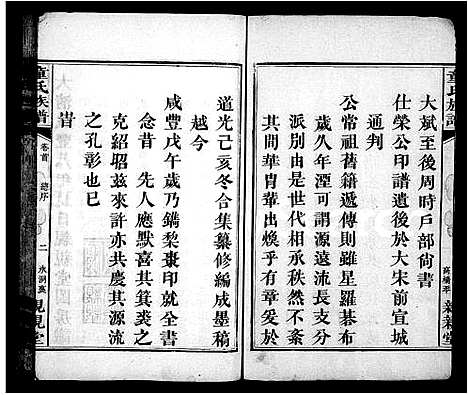 大斌至後周時戶部尙書
仕榮公印譜遺後於大宋前宣城
通判
公常祖舊籍遞傳則雖星羅棊布
歲久年湮可謂源遠流長支分
派別由是世代相承秩然不紊
其間華胄葦出煥乎有章爰於
道光己亥冬合集纂修編成墨稿
越今
咸豐戊午歲乃鐫梨棗印就全書
念昔先人應默喜其箕裘之
克紹昭茲來許亦共慶其源流
之孔彰也已
旹
童氏族譜
卷首
總序
二
親親堂
童氏族譜
親親堂